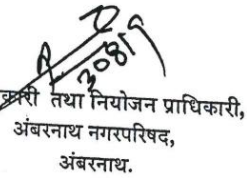 तथा नियोजन प्राधिकारी,
अंबरनाथ नगरपरिषद,
अंबरनाथ.